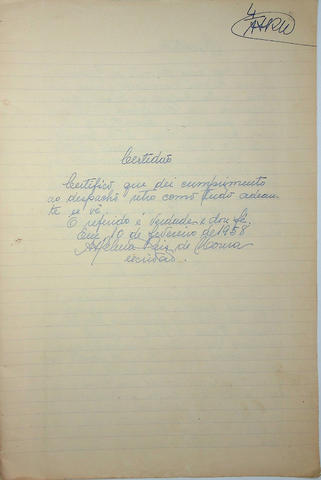 4
Certidão
Certifico que dei cumprimento
ao despacho como tudo adean-
te se vê.
O referido é verdade e dou fé.
Em, 10 de fevereiro de 1958
de
escrivão.